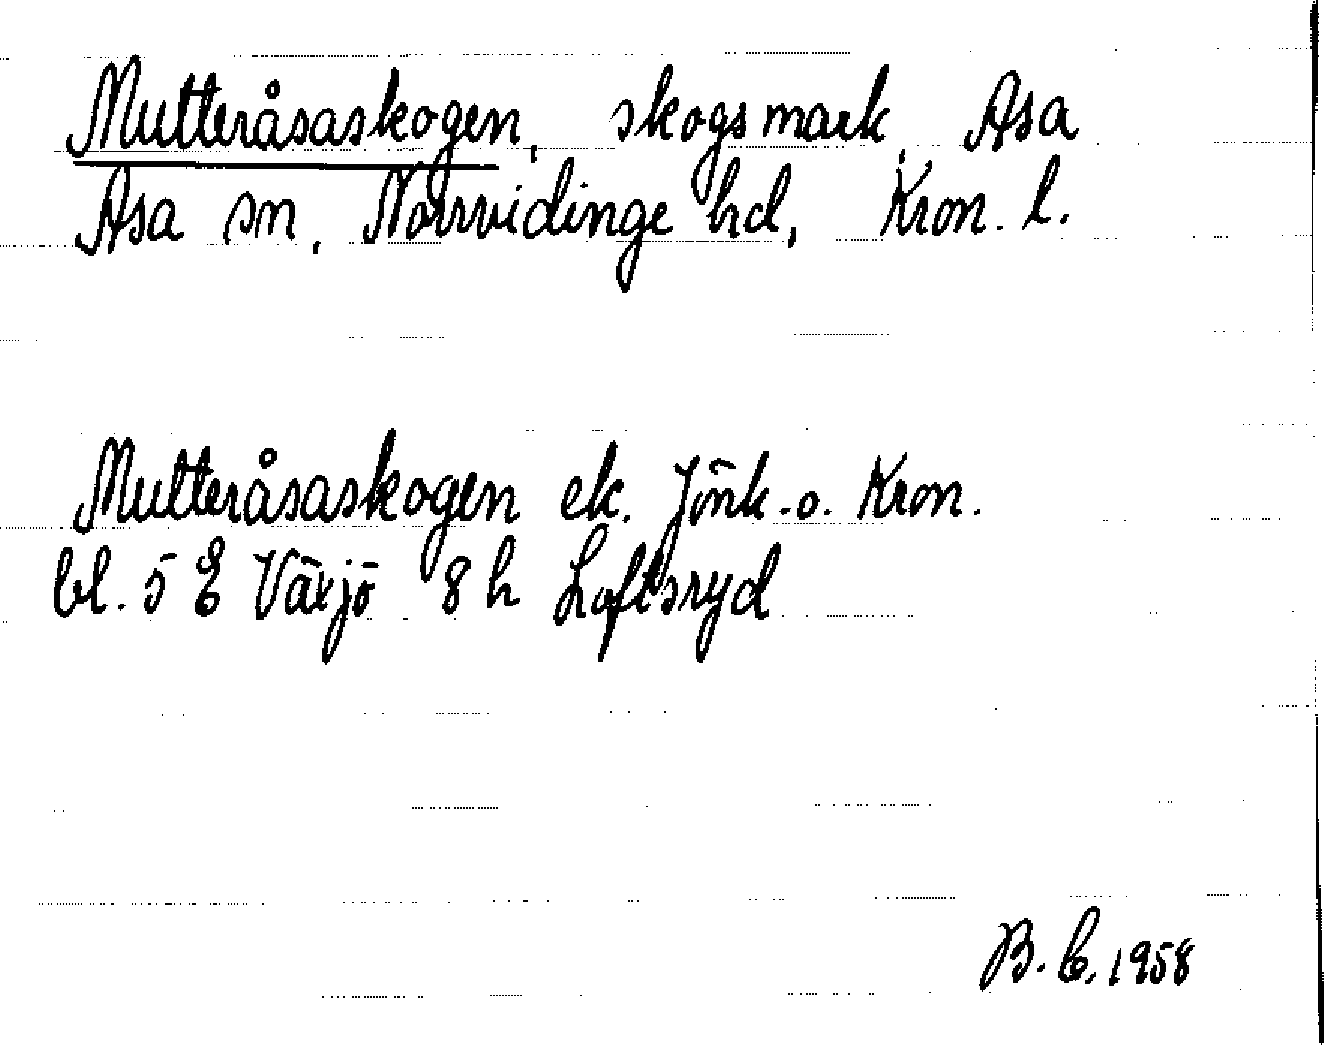 Mutteråsaskogen, skogsmark, Asa
Asa sn, Norrvidinge hd, Kron. l.
Mutteråsaskogen ek. Jönk.-o. Kron.
bl. 5 E Växjö 8 h Loftsryd
B. C. 1958